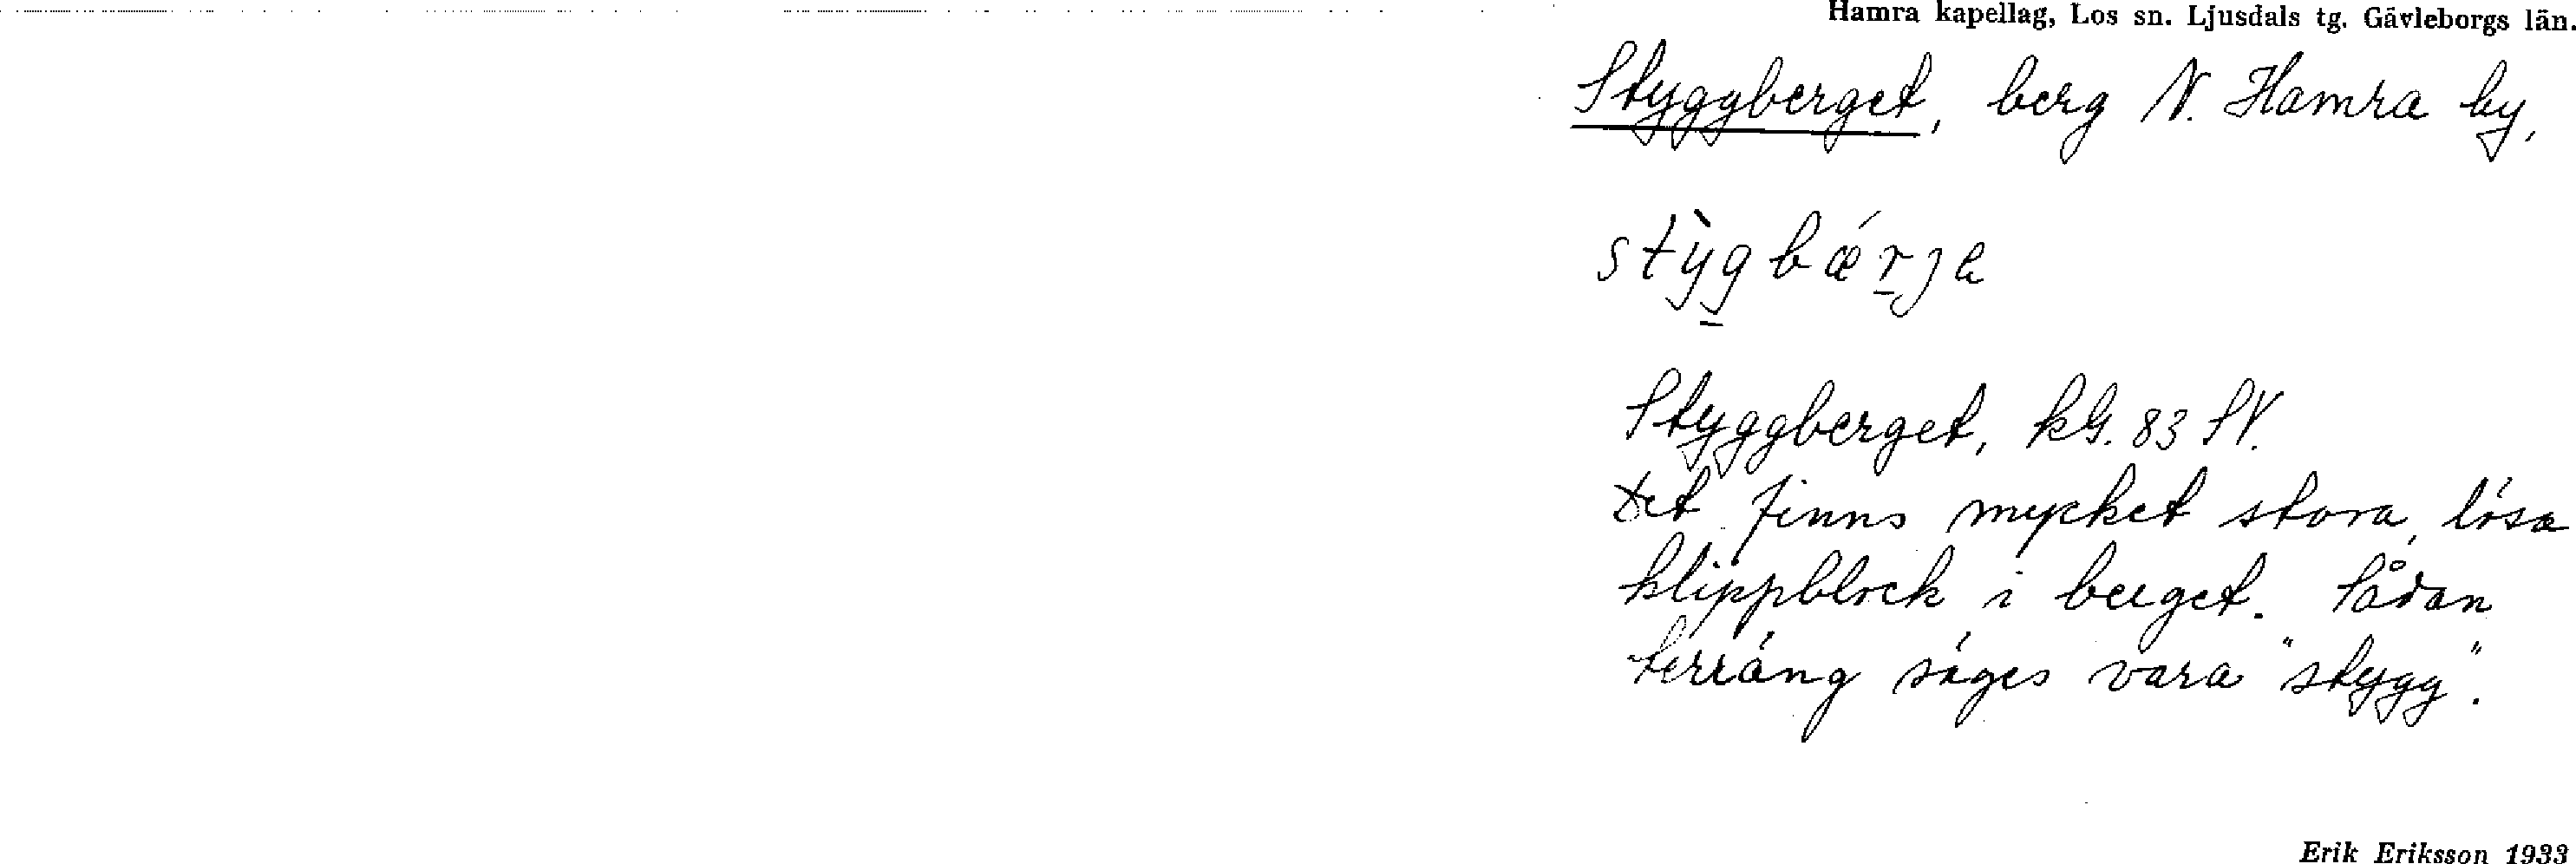 Hamra kapellag, Los sn. Ljusdals tg. Gävleborgs län.
Styggberget, berg N. Hamra by,
stỳgbǽrje
Styggberget, kG. 83 SV.
Det finns mycket stora, lösa
klippblock i berget. Sådan
terräng säges vara "stygg".
Erik Eriksson 1933